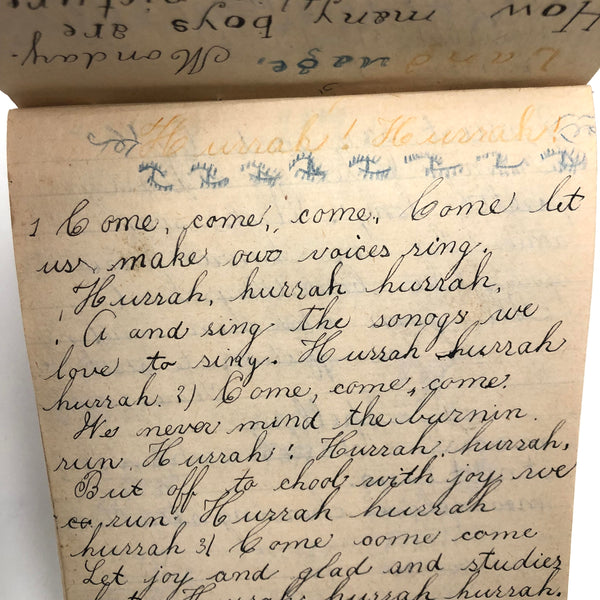 How many boys are
Landuage. Monday.
Hurrah! Hurrah!
1 Come, come, come, Come let
us, make our voices ring.
Hurrah, hurrah hurrah,
! A and sing the songs we
love to sing. Hurrah hurrah
hurrah. 2) Come, come, come.
We never mind the burnin.
run. Hurrah! Hurrah. hurrah,
But off to chool with joy we
run. Hurrah hurrah
hurrah 3) Come oome come
Let joy and glad and studies
Hurrah hurrah hurrah.